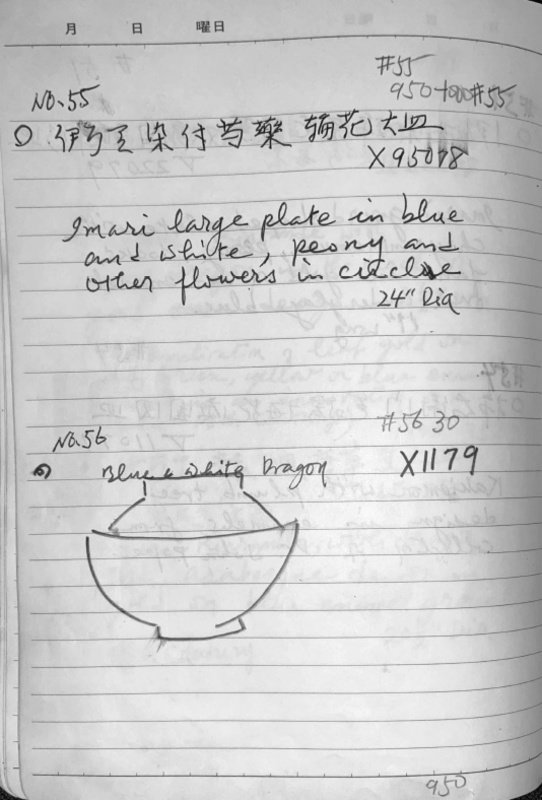 月 日 曜日
#55
No.55
950 #55
伊万里染付芍薬輪花大皿
X95078
Imari large plate in blue
and white, peony and
other flowers in circle
24" Dia
No.56
#56 30
Blue & White Dragon
X1179
950